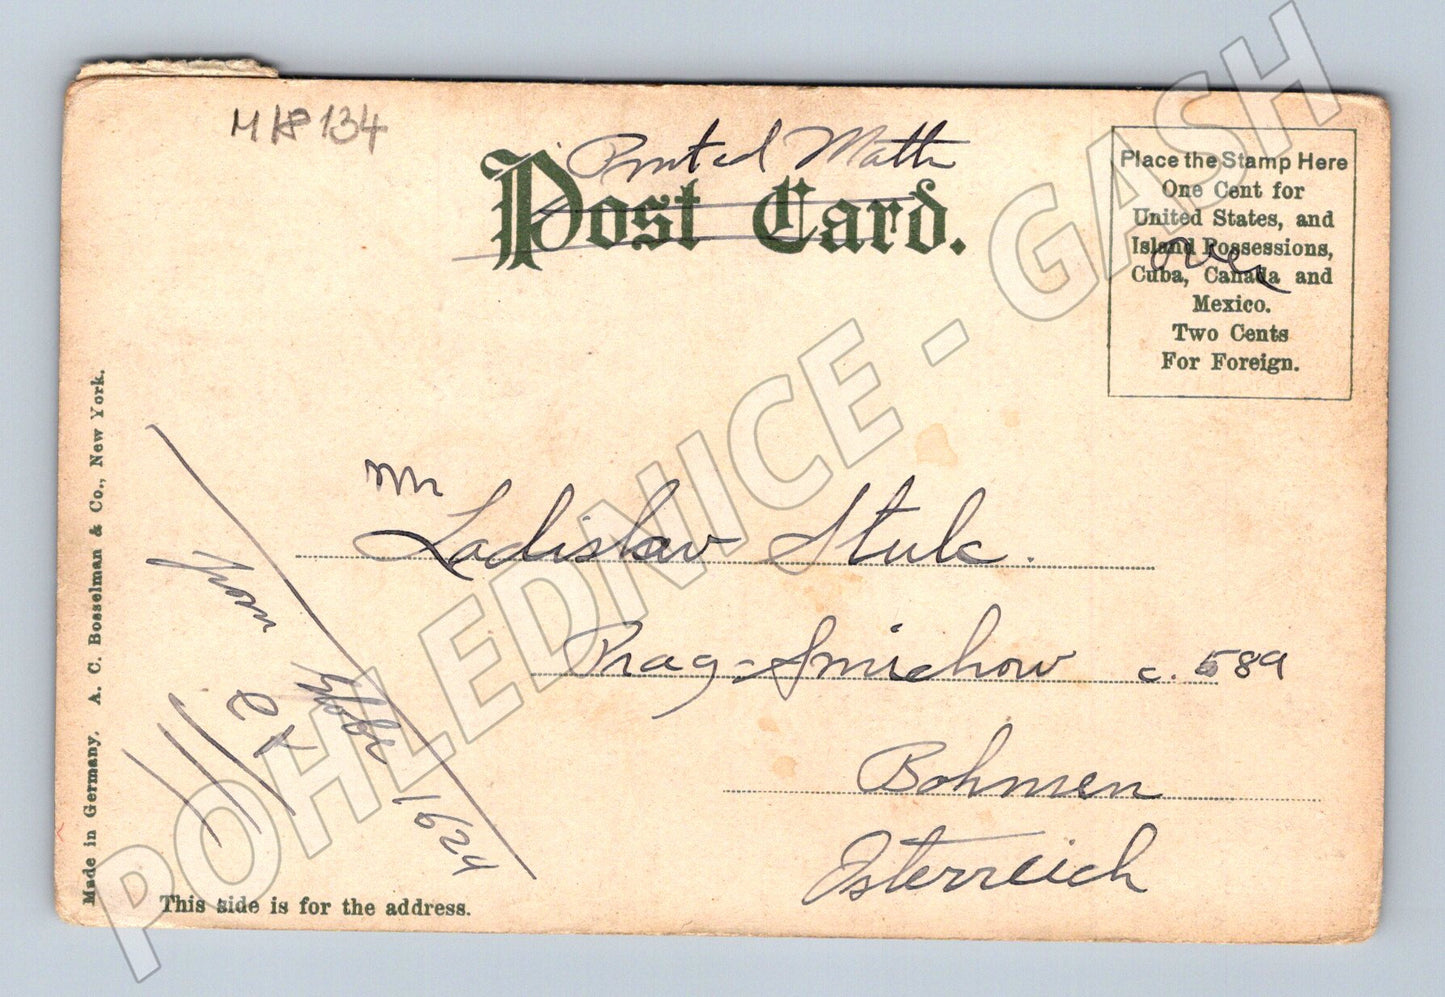 M K8 134
Printed Matter
Post Card.
Place the Stamp Here
One Cent for
United States, and
Island Possessions,
Cuba, Canada and
Mexico.
Two Cents
For Foreign.
Over
Mr
Ladislav Stulc.
Prag-Smichow c. 589
Bohmen
Österreich
from
1624
Made in Germany. A. C. Bosselman & Co., New York.
This side is for the address.
POHLEDNICE - GASH